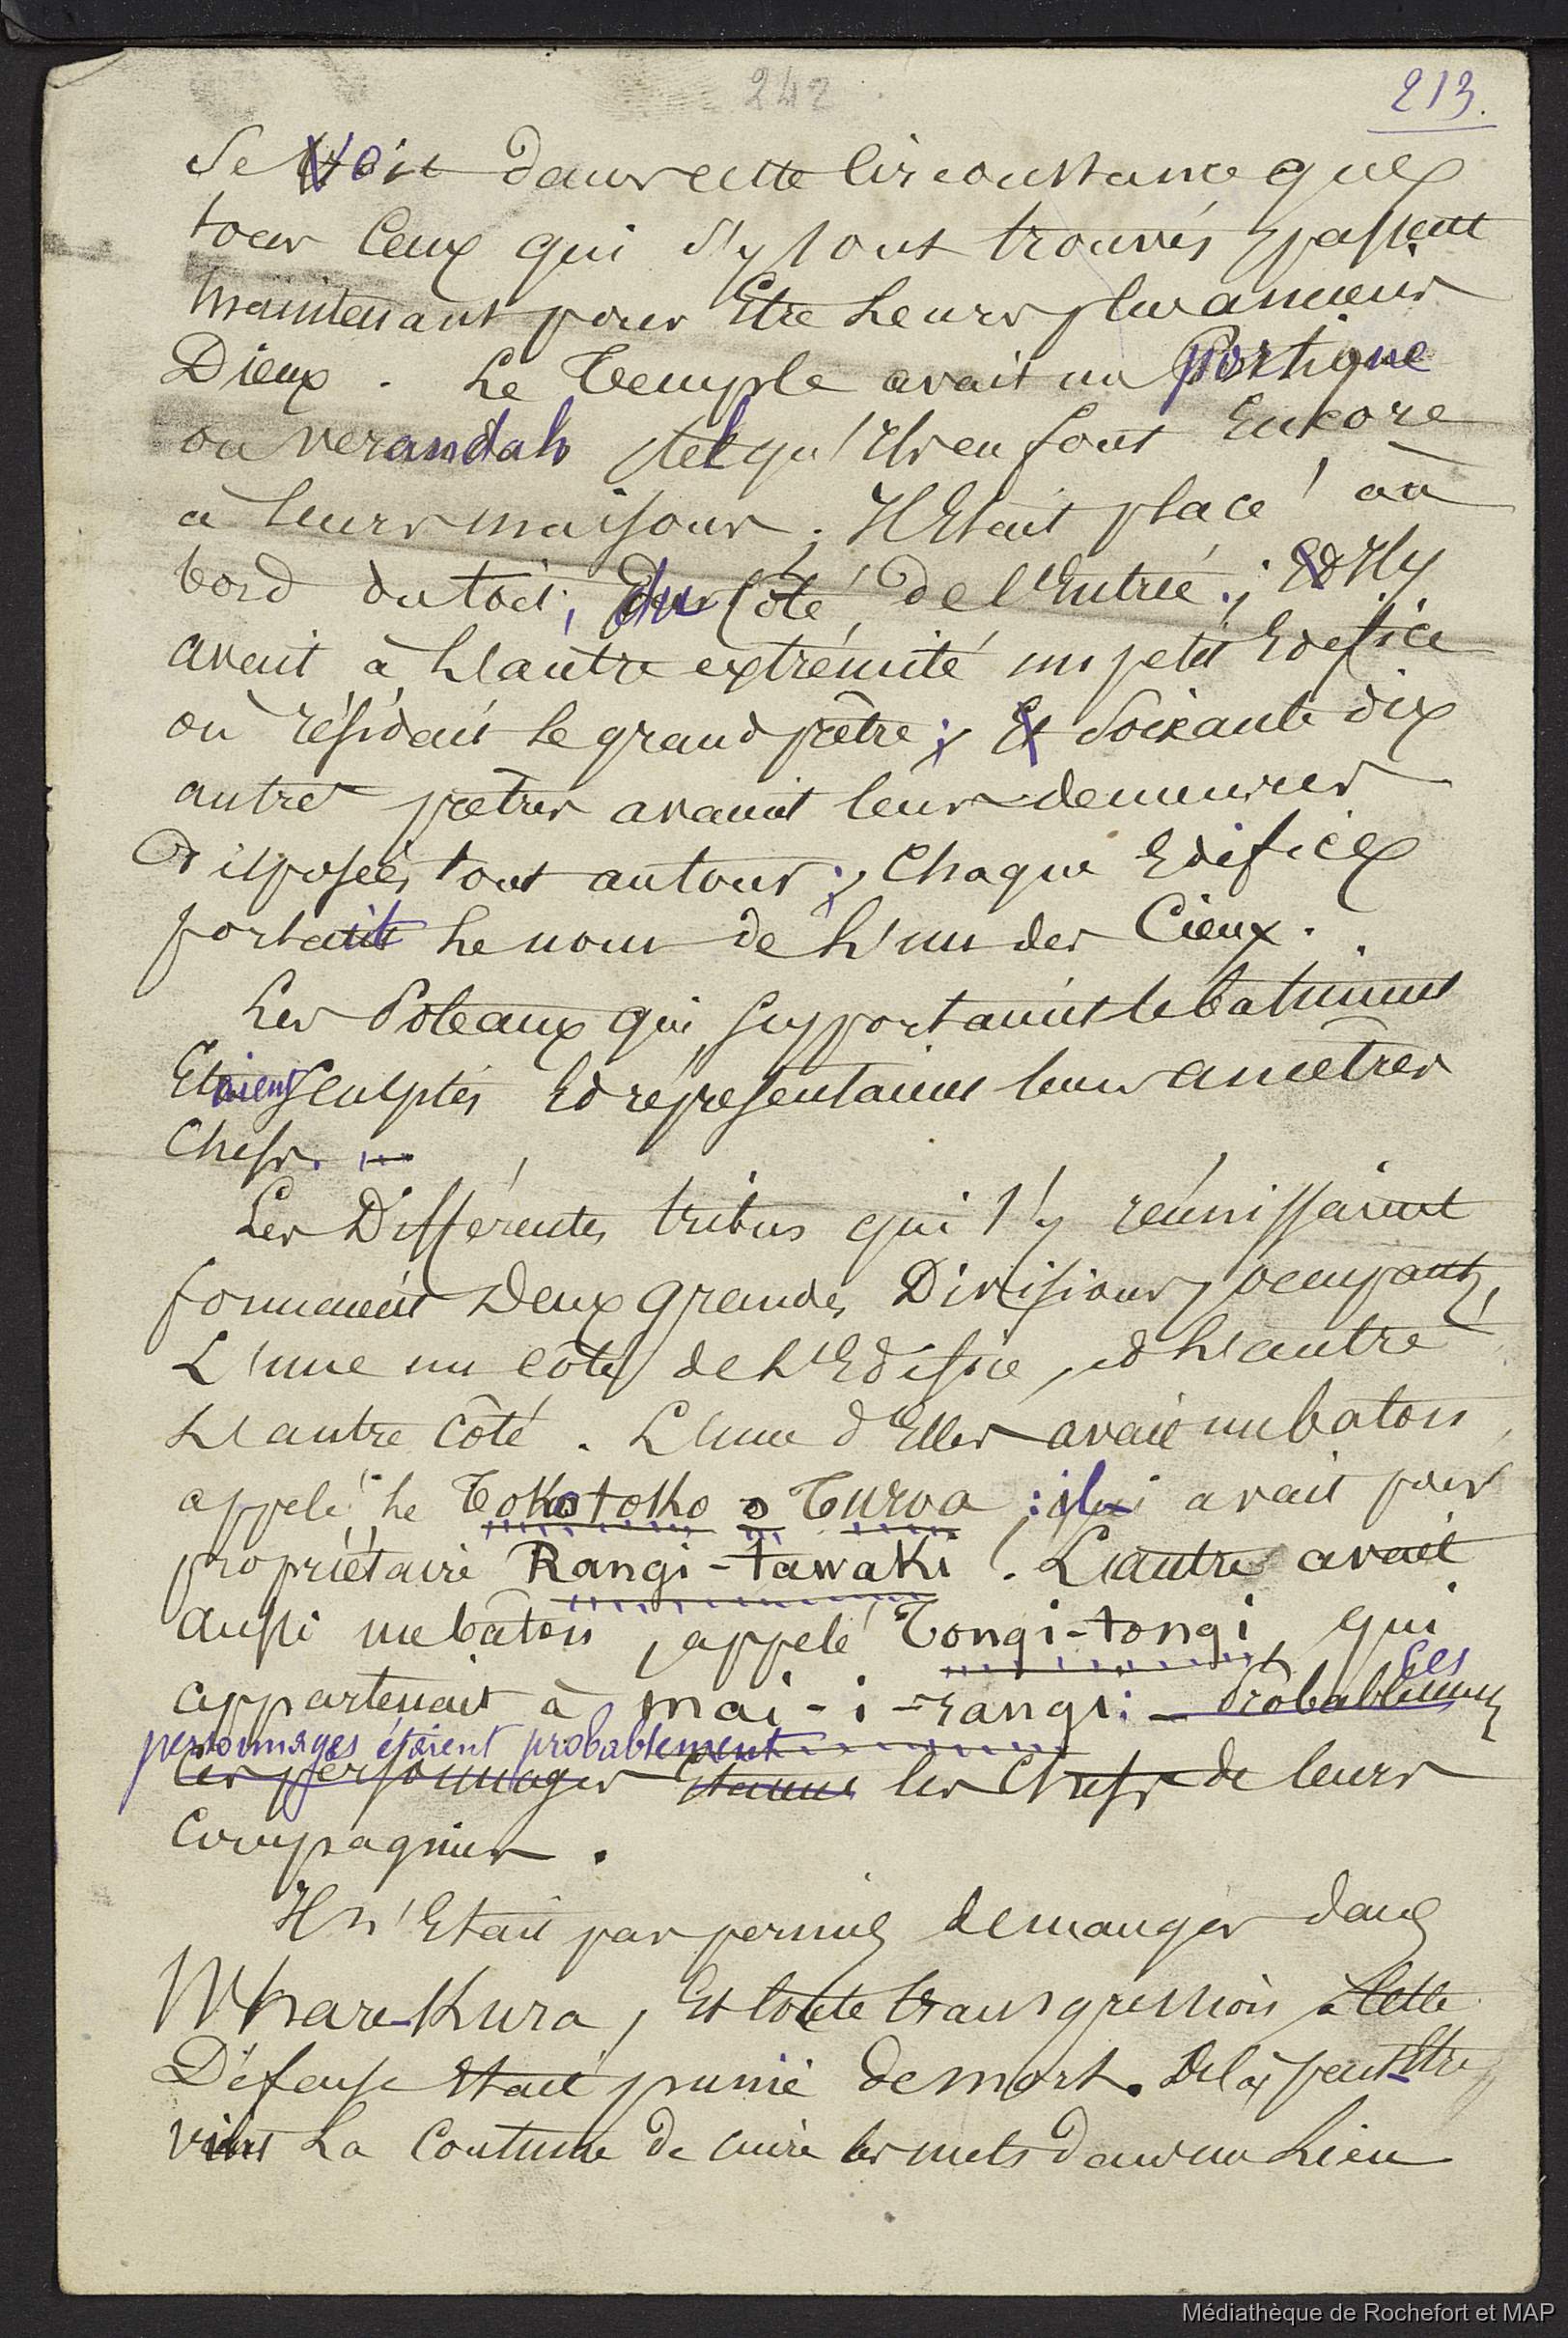 242
213.
Se voit dans cette Circonstance que
tous Ceux qui s'y sont trouvés passent
maintenant pour Etre Leurs plus anciens
Dieux. Le Temple avait un portique
ou verandah tel qu'Ils en font Encore
à leurs maisons; Il Etait placé au
bord du toit, du Côté de l'Entrée; Il y
avait à L'autre extrémité un petit Edifice
où résidait le grand prêtre; Et Soixante dix
autres prêtres avaient leurs demeures
Disposées tout autour; Chaque Edifice
portait Le nom de L'un des Cieux.
Les Poteaux qui supportaient le batiment
Etaient Sculptés Et représentaient leurs ancêtres
Chefs.
Les Différentes tribus qui s'y réunissaient
formaient Deux grandes Divisions, occupant,
L'une un côté de L'Edifice, et L'autre
L'autre Côté. L'une d'Elles avait un baton
appelé Le Tokotoko o Turoa : il avait pour
propriétaire Rangi-tawaki. L'autre avait
aussi un bâton, appelé Tongi-tongi, qui
appartenait à mai-i-rangi: Probablement Ces
personnages étaient probablement
Ces personnages Etaient les Chefs de leurs
Compagnies.
Il n'Etait pas permis de manger dans
Whare-Kura, Et toute transgression à Cette
Défense Etait punie de mort. De là peut-Etre
vint La Coutume de cuire les mets dans un Lieu
Médiathèque de Rochefort et MAP